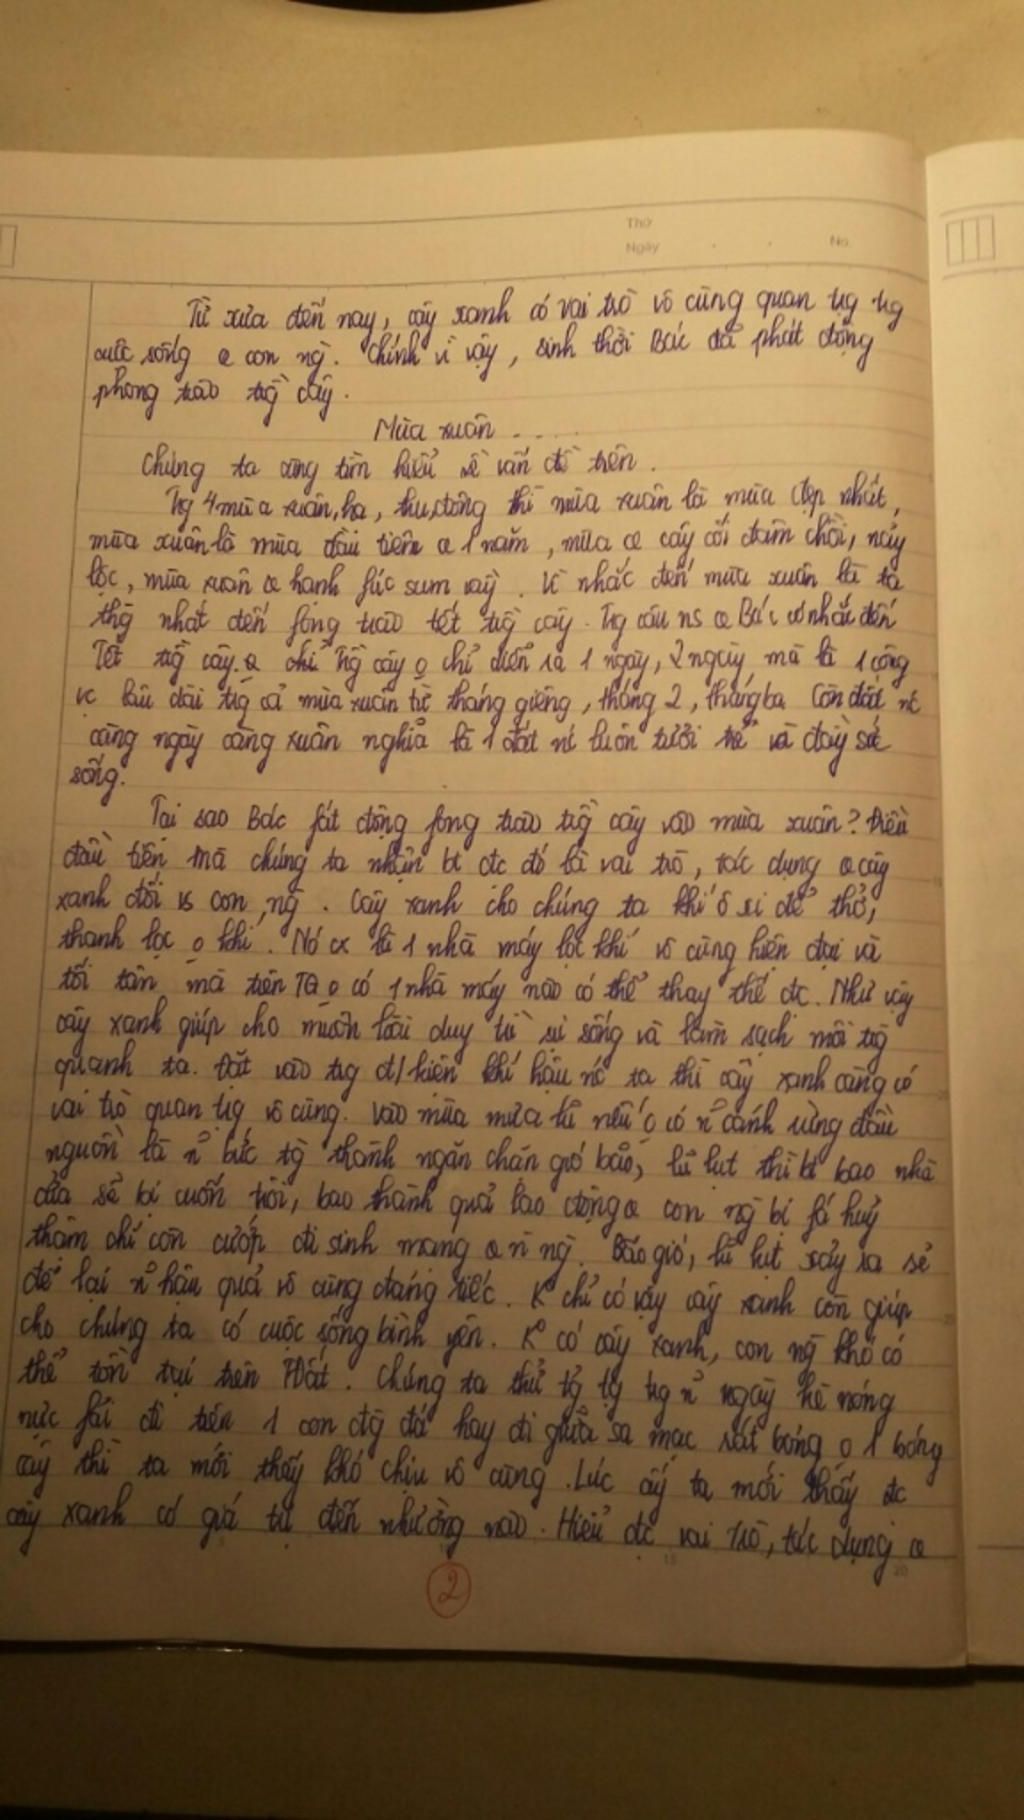 Thứ
Ngày . . No.
Từ xưa đến nay, cây xanh có vai trò vô cùng quan tṛg trg
cuộc sống @ con ng̀. Chính vì vậy, sinh thời Bác đã phát động
phong trào trg̀ cây.
Mùa xuân ....
Chúng ta cùng tìm hiểu về vấn đề trên.
Trg 4 mùa xuân, hạ, thu, đông thì mùa xuân là mùa đẹp nhất,
mùa xuân là mùa đầu tiên @ 1 năm, mùa @ cây cối đâm chồi, nảy
lộc, mùa xuân @ hạnh fúc sum vầy. Vì nhắc đến mùa xuân là ta
nhất đến fong trào tết trg̀ cây. Trg câu ns @ Bác có nhắc đến
Tết trg̀ cây. trg̀ cây o chỉ diễn ra 1 ngày, 2 ngày mà là 1 công
vc lâu dài trg cả mùa xuân từ tháng giêng, tháng 2, tháng ba. Còn đất nc
càng ngày càng xuân nghĩa là 1 đất nc luôn tươi trẻ và đầy sức
sống.
Tại sao Bác fát động fong trào trg̀ cây vào mùa xuân? Điều
đầu tiên mà chúng ta nhận bt đc đó là vai trò, tác dụng @ cây
xanh đối vs con ng̀. Cây xanh cho chúng ta khí ô xi để thở,
thanh lọc o khí. Nó cx là 1 nhà máy lọc khí vô cùng hiện đại và
tối tân mà trên TG o có 1 nhà máy nào có thể thay thế đc. Như vậy
cây xanh giúp cho muôn loài duy trì sự sống và làm sạch môi trg
quanh ta. Đặt vào trg đ/kiện khí hậu nc ta thì cây xanh càng có
vai trò quan tṛg vô cùng. Vào mùa mưa lũ nếu o có n~ cánh rừng đầu
nguồn là n~ bức tg̀ thành ngăn chặn gió bão, lũ lụt thì bt bao nhà
cửa sẽ bị cuốn trôi, bao thành quả lao động @ con ng̀ bị fá huỷ
thậm chí còn cướp đi sinh mạng @ n~ ng̀. Bão gió, lũ lụt xảy ra sẽ
để lại n~ hậu quả vô cùng đáng tiếc. K° chỉ có vậy cây xanh còn giúp
cho chúng ta có cuộc sống bình yên. K° có cây xanh, con ng̀ khó có
thể tồn tại trên TĐất. Chúng ta thử tg tg trg n~ ngày hè nóng
nực fải đi trên 1 con đg đá hay đi giữa sa mạc vắt bóng o 1 bóng
cây thì ta mới thấy khó chịu vô cùng. Lúc ấy ta mới thấy đc
cây xanh có giá trị đến nhường nào. Hiểu đc vai trò, tác dụng @
2